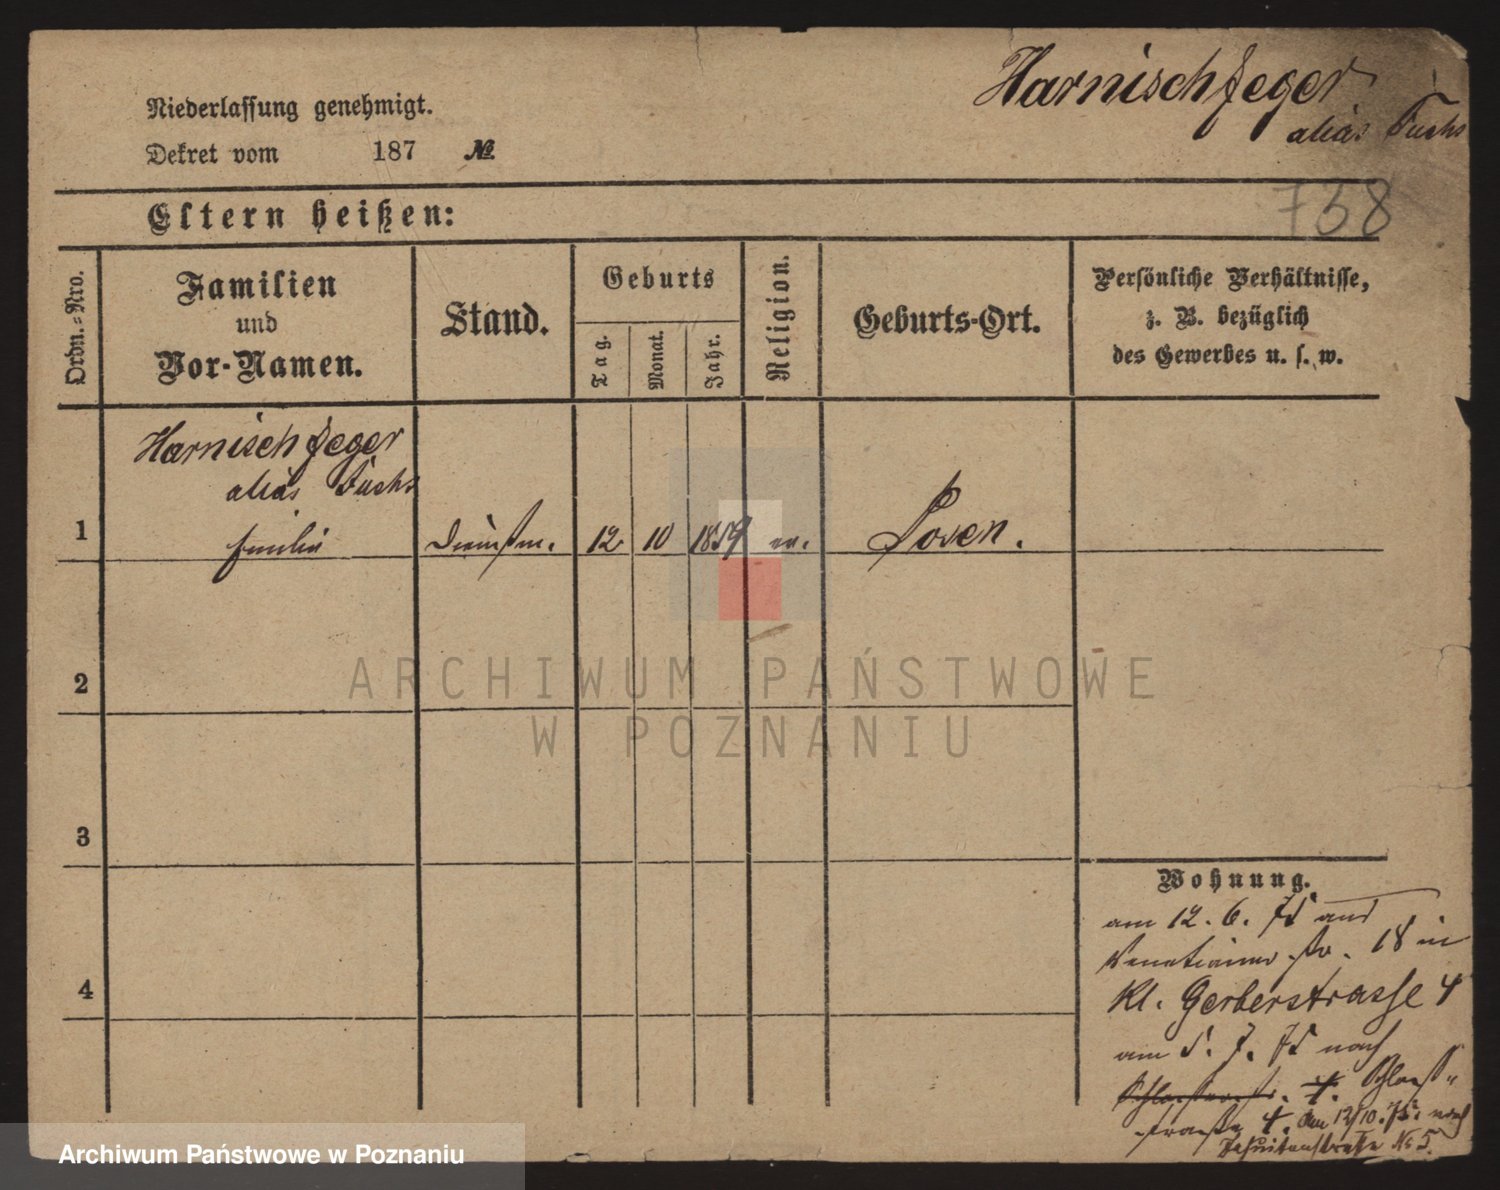 Harnischfeger
alias Fuchs
Niederlassung genehmigt.
Dekret vom 187 №
738
Eltern heißen:
Ordn.-Nro.
Familien
und
Vor-Namen.
Stand.
Geburts
Tag.
Monat.
Jahr.
Religion.
Geburts-Ort.
Persönliche Verhältnisse,
z. B. bezüglich
des Gewerbes u. s. w.
Harnischfeger
alias Fuchs
1 Emilie Dienstm. 12 10 1859 ev. Posen.
2
3
4
Wohnung.
am 12. 6. 75 aus
Venetianerstr. 18 in
Kl. Gerberstrasse 4
am 5. 7. 75 nach
4. Schloss-
strasse 4. am 12/10. 75. nach
Jesuitenstrasse No 5.
ARCHIWUM PAŃSTWOWE
W POZNANIU
Archiwum Państwowe w Poznaniu